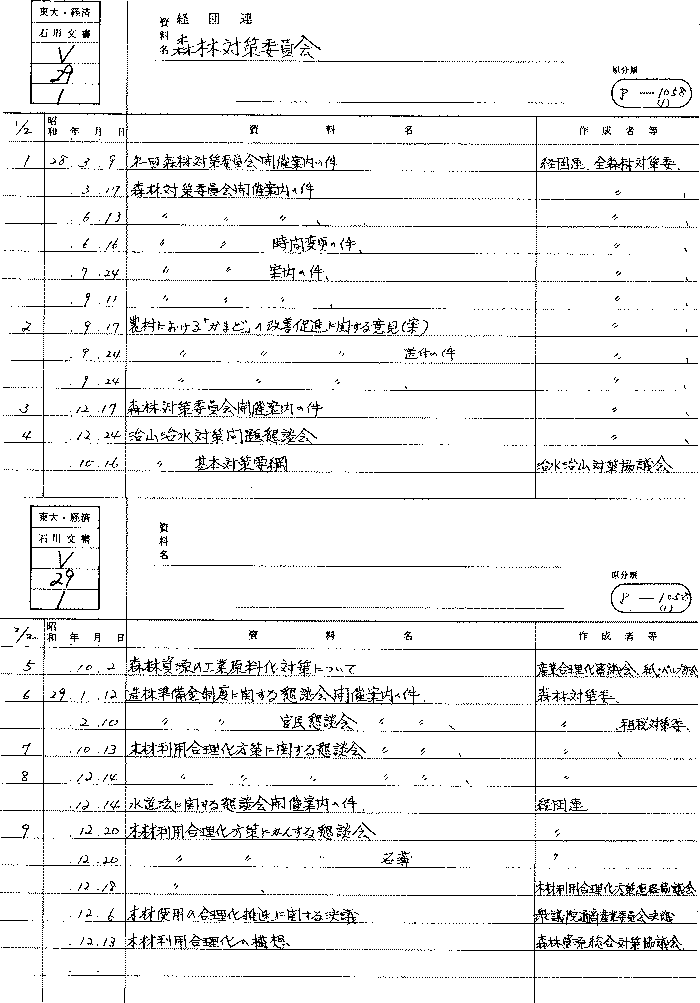 東大・経済
石川文書
V
29
1
資料名 経団連
森林対策委員会
原分類
P—1058
(1)
1/2 昭和 年 月 日 資料名 作成者等
1 28 3 9 森林対策委員会開催案内の件 経団連、森林対策委、
3 17 森林対策委員会開催案内の件 〃 、
6 13 〃 〃 〃 、 〃 、
6 16 〃 〃 時間変更の件、 〃 、
7 24 〃 〃 案内の件、 〃 、
9 11 〃 〃 〃 、 〃 、
2 9 17 農村における「かまど」の改善促進に関する意見(案) 〃 、
9 24 〃 〃 〃 送付の件 〃 、
9 24 〃 〃 〃 、 〃 、
3 12 17 森林対策委員会開催案内の件 〃 、
4 12 24 治山治水対策問題懇談会 〃 、
10 16 〃 基本対策要綱 治水治山対策協議会
東大・経済
石川文書
V
29
1
資料名
原分類
P—1058
(1)
2/2 昭和 年 月 日 資料名 作成者等
5 10 2 森林資源の工業原料化対策について 産業合理化審議会、紙・パルプ部会
6 29 1 12 造林準備金制度に関する懇談会開催案内の件、 森林対策委、
2 10 〃 〃 官民懇談会 〃 〃 、 〃 、租税対策委、
7 10 13 木材利用合理化方策に関する懇談会 〃 〃 、 〃 、
8 12 14 〃 〃 〃 〃 〃 、 〃
12 14 水道法に関する懇談会開催案内の件、 経団連
9 12 20 木材利用合理化方策にかんする懇談会 〃
12 20 〃 〃 〃 名簿 〃
12 18 〃 、 木材利用合理化方策連絡協議会
12 6 木材使用の合理化推進に関する決議 衆議院通商産業委員会決議
12 13 木材利用合理化の構想、 森林資源総合対策協議会